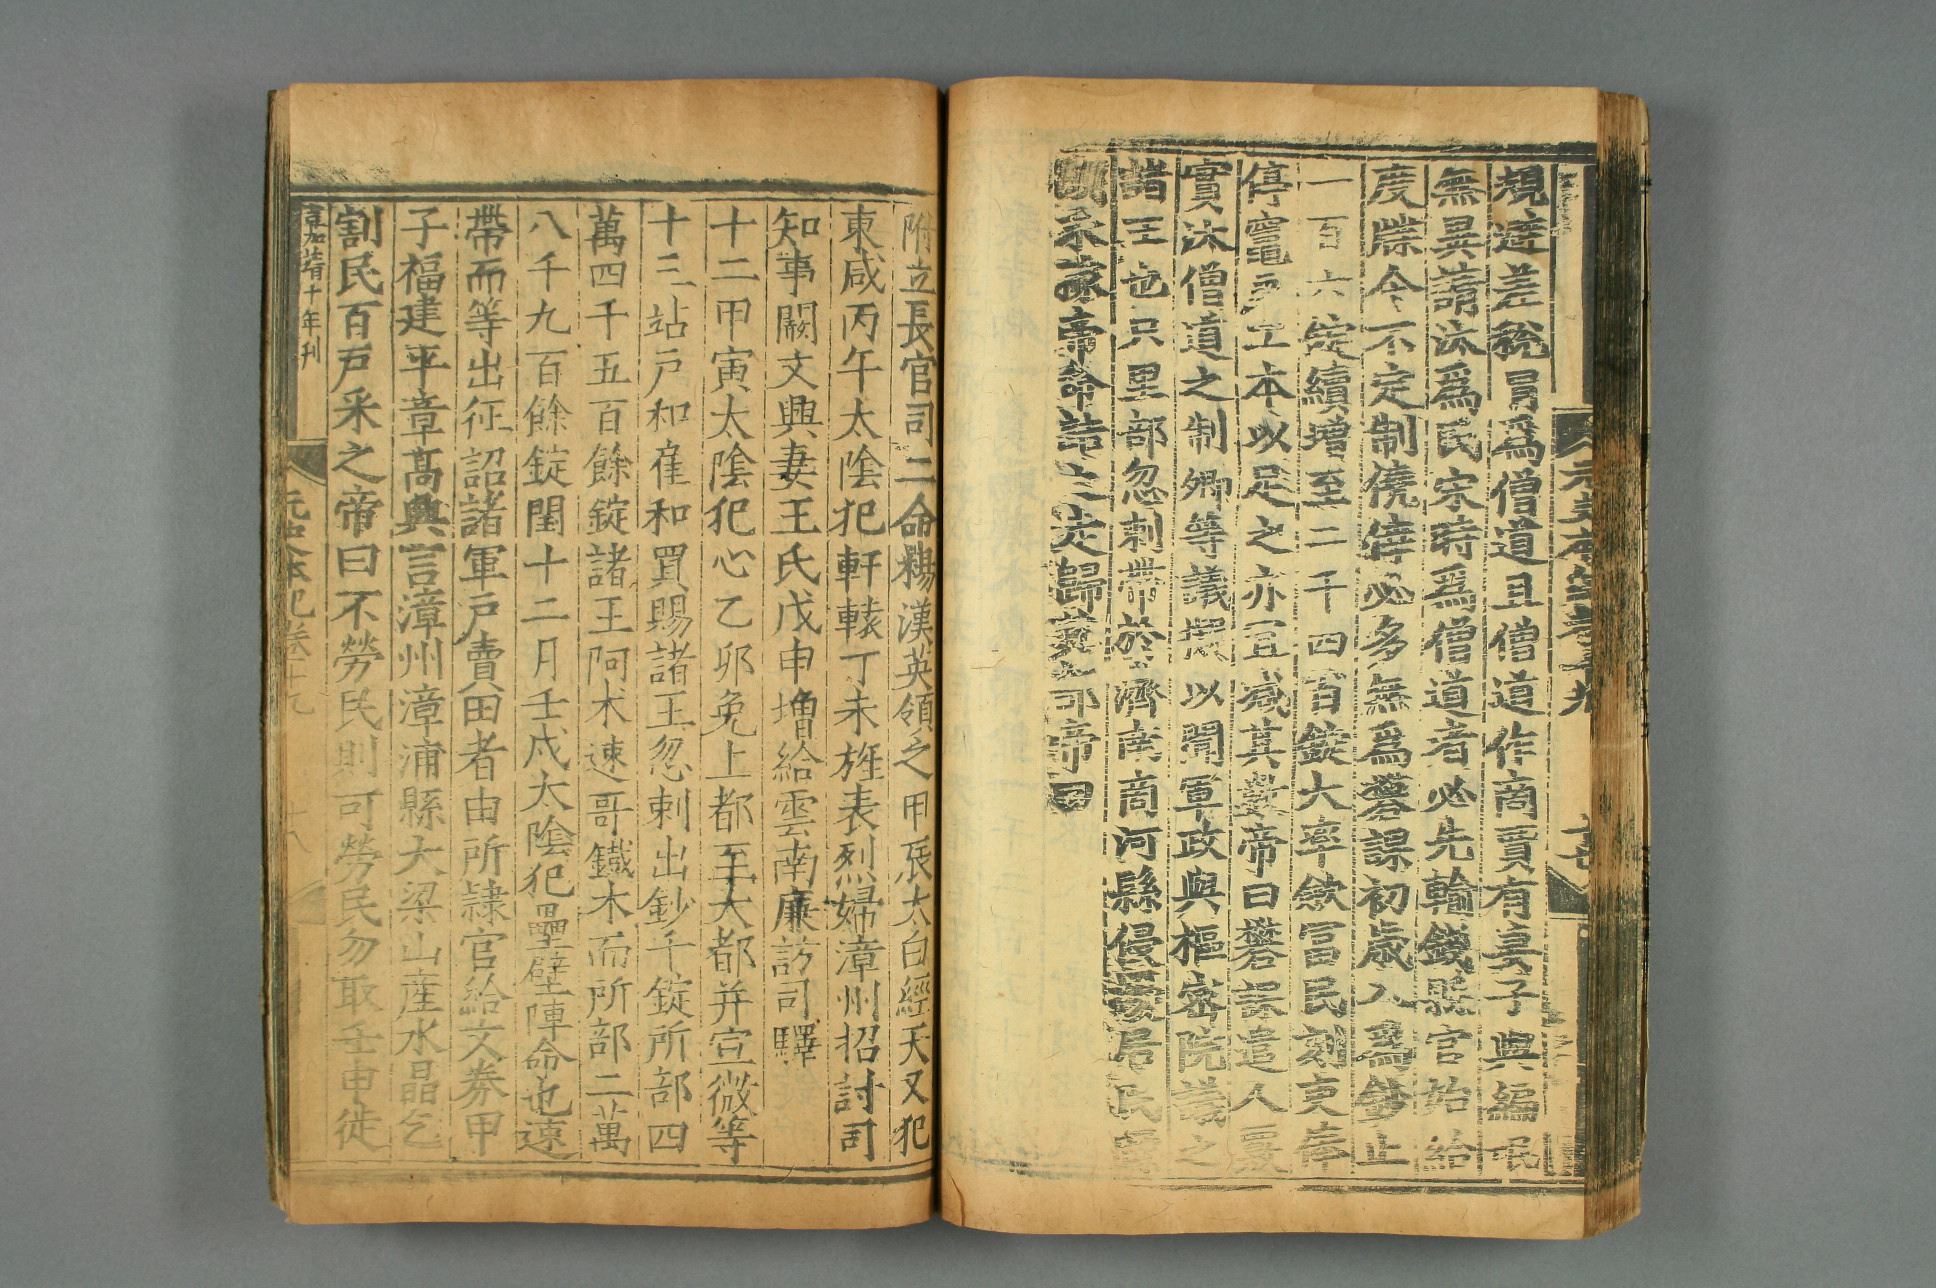 規避差稅冒爲僧道且僧道作商賈有妻子與編氓
無異請汰爲民宋時爲僧道者必先輸錢縣官始給
度牒今不定制僥倖必多無爲礬課初歲入爲鈔止
一百六錠續增至二千四百錠大率斂冨民刻吏俸
停竈戶工本以足之亦冝減其數帝曰礬課遣人覈
實汰僧道之制卿等議擬以聞軍政與樞密院議之
諸王也只里部忽剌帶於濟南商河縣侵擾居民
帝命詰之走歸其部帝曰
元史本紀卷十九
附立長官司二命楊漢英領之甲辰太白經天又犯
東咸丙午太陰犯軒轅丁未旌表烈婦漳州招討司
知事闞文興妻王氏戊申增給雲南廉訪司驛
十二甲寅太陰犯心乙卯免上都至大都并宣徽等
十三站戶和雇和買賜諸王忽剌出鈔千錠所部四
萬四千五百餘錠諸王阿朮速哥鐵木而所部二萬
八千九百餘錠閏十二月壬戌太陰犯壘壁陣命也速
帶而等出征詔諸軍戶賣田者由所隷官給文券甲
子福建平章高興言漳州漳浦縣大梁山產水晶乞
割民百戶采之帝曰不勞民則可勞民勿取壬申徙
嘉靖十年刊
元史本紀卷十九
十八